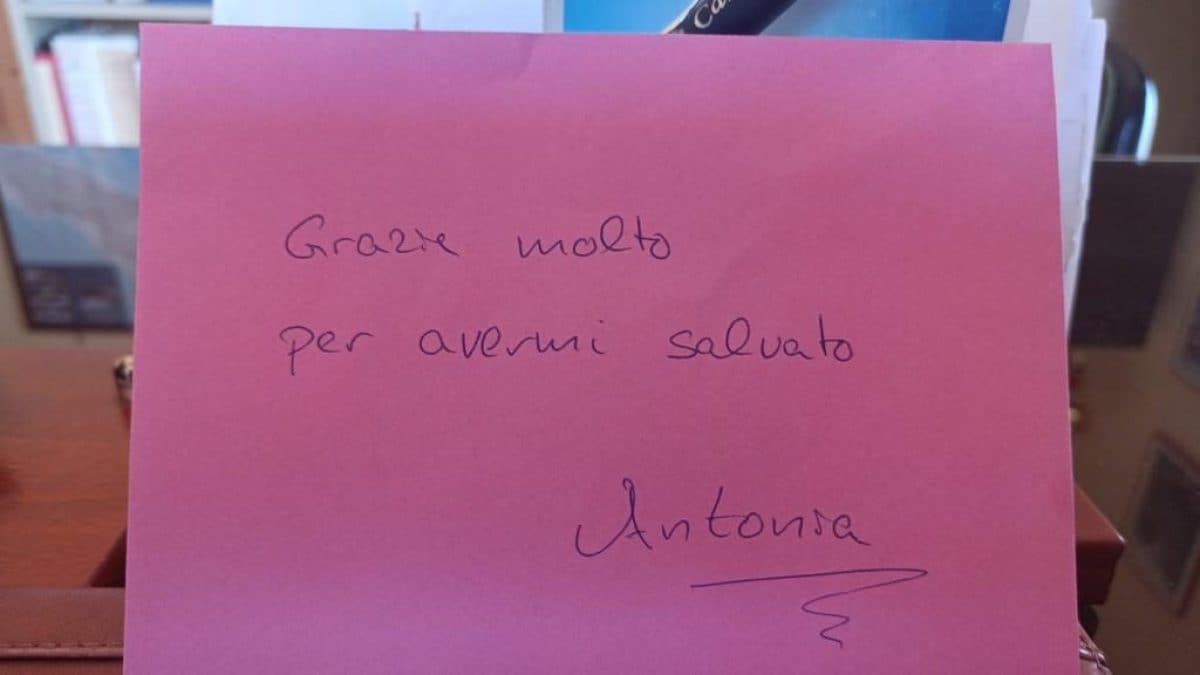 Grazie molto
per avermi salvato
Antonia